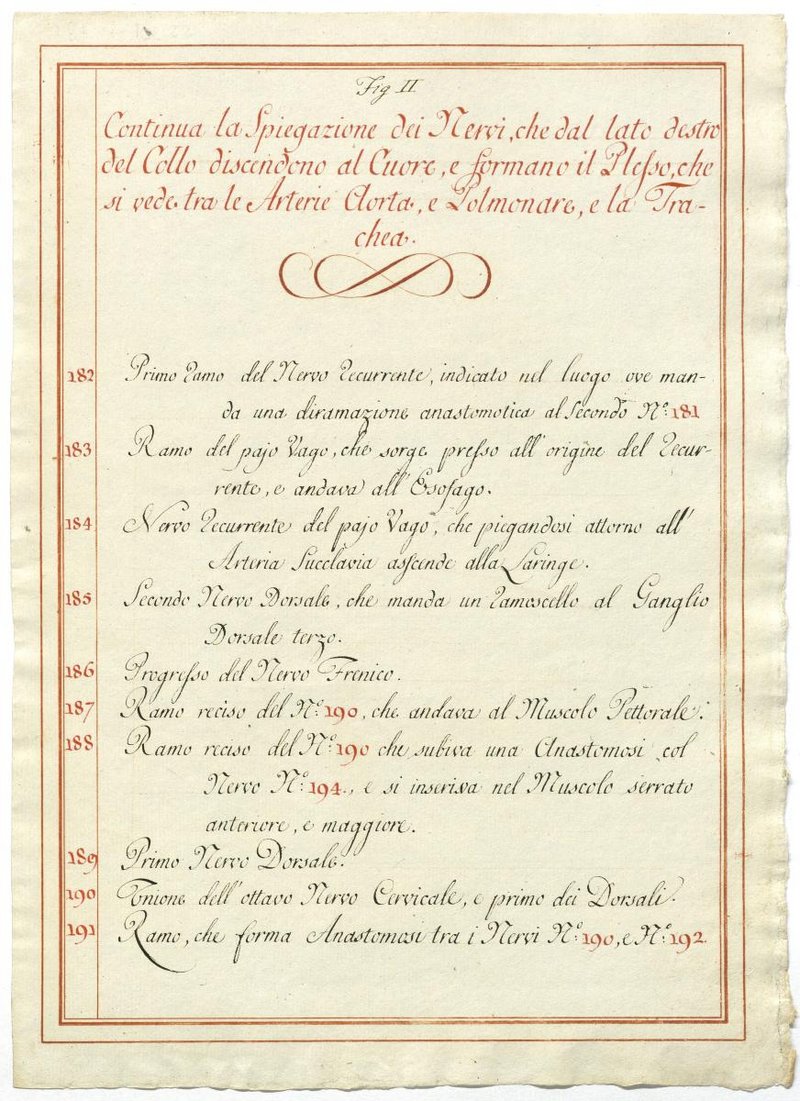 Fig II
Continua la Spiegazione dei Nervi, che dal lato destro
del Collo discendono al Cuore, e formano il Plesso, che
si vede tra le Arterie Aorta, e Polmonare, e la Tra-
chea.
182 Primo ramo del Nervo recurrente, indicato nel luogo ove man-
da una diramazione anastomotica al secondo Nº. 181
183 Ramo del pajo Vago, che sorge presso all' origine del recur-
rente, e andava all' Esofago.
184 Nervo recurrente del pajo Vago, che piegandosi attorno all'
Arteria Succlavia asscende alla Laringe.
185 Secondo Nervo Dorsale, che manda un ramoscello al Ganglio
Dorsale terzo.
186 Progresso del Nervo Frenico.
187 Ramo reciso del Nº. 190, che andava al Muscolo Pettorale.
188 Ramo reciso del Nº. 190 che subiva una Anastomosi col
Nervo Nº. 194., e si inseriva nel Muscolo serrato
anteriore, e maggiore.
189 Primo Nervo Dorsale.
190 Unione dell' ottavo Nervo Cervicale, e primo dei Dorsali.
191 Ramo, che forma Anastomosi tra i Nervi Nº. 190, e Nº. 192.